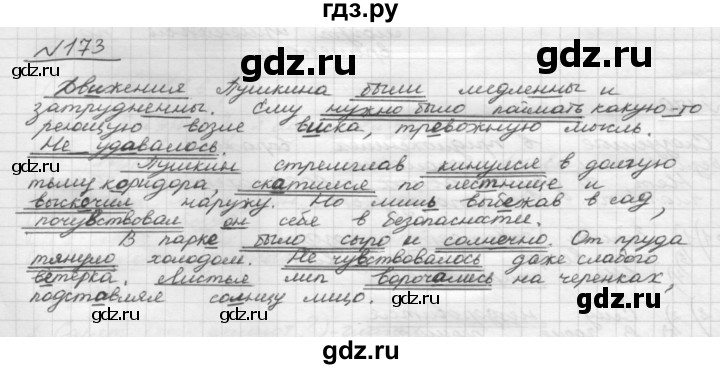 гдз.ру
№173
Движения Пушкина были медленны и
затрудненны. Ему нужно было поймать какую-то
реющую возле виска, тревожную мысль.
Не удавалось.
Пушкин стремглав кинулся в долгую
тьму коридора, скатился по лестнице и
выскочил наружу. Но лишь выбежав в сад,
почувствовал он себе в безопасности.
В парке было сыро и солнечно. От пруда
тянуло холодом. Не чувствовалось даже слабого
ветерка. Листья лип ворочались на черенках,
подставляя солнцу лицо.
gdz.ru gdz.ru gdz.ru
gdz.ru gdz.ru gdz.ru
gdz.ru gdz.ru gdz.ru
gdz.ru gdz.ru gdz.ru
gdz.ru